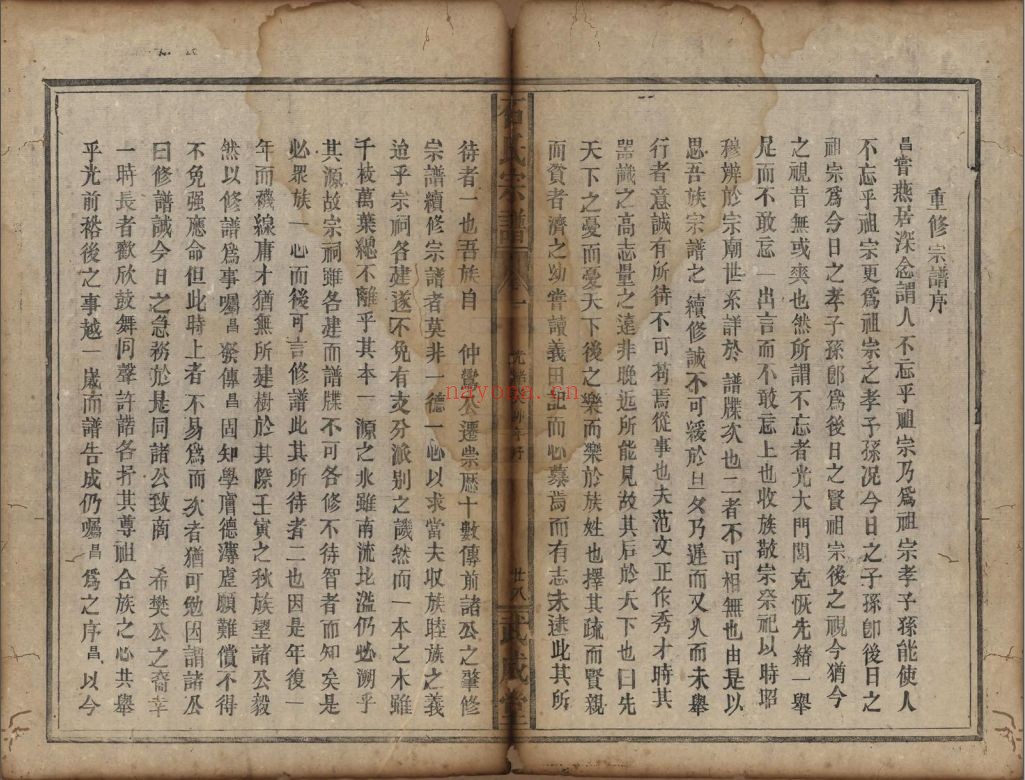 重修宗譜序
昌嘗燕居深念謂人不忘乎祖宗乃爲祖宗孝子孫能使人
不忘乎祖宗更爲祖宗之孝子孫况今日之子孫卽後日之
祖宗爲今日之孝子孫卽爲後日之賢祖宗後之視今猶今
之視昔無或爽也然所謂不忘者光大門閭克恢先緒一舉
足而不敢忘一出言而不敢忘上也收族敬宗祭祀以時昭
穆辨於宗廟世系詳於 譜牒次也二者不可相無也由是以
思吾族宗譜之 續修誠不可緩於旦夕乃遲而又久而未舉
行者意誠有所待不可苟焉從事也夫范文正作秀才時其
器識之高志量之遠非晚近所能見故其后於天下也曰先
天下之憂而憂天下後之樂而樂於族姓也擇其疏而賢親
而貧者濟之幼嘗讀義田記而心慕焉而有志未逮此其所
石氏宗譜 卷一
廿八 武威堂
待者一也吾族自 仲鸞公遷崇歴十數傳前諸公之肇修
宗譜續修宗譜者莫非一德一心以求當夫収族睦族之義
迨乎宗祠各建遂不免有支分派别之譏然而一本之木雖
千枝萬葉總不離乎其本一源之水雖南流北溢仍必溯乎
其源故宗祠雖各建而譜牒不可各修不待智者而知矣是
必眾族一心而後可言修譜此其所待者二也因是年復一
年而襪線庸才猶無所建樹於其際壬寅之秋族望諸公毅
然以修譜爲事囑昌 發傳昌 固知學膚德薄虛願難償不得
不免强應命但此時上者不易爲而次者猶可勉因謂諸公
曰修譜誠今日之急務於是同諸公致商 希樊公之裔幸
一時長者歡欣鼓舞同聲許諾各抒其尊祖合族之心共舉
乎光前裕後之事越一歲而譜告成仍囑昌 爲之序昌 以今
nayoona.cn